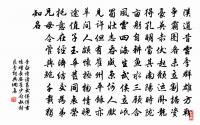 漢道昔云季羣雄方戰
爭霸圖各未立割據資
豪英赤伏起頹運卧龍
得孔明當其南陽時隴
畝躬自耕魚水三顧合
風雲四海生武侯立岷
蜀壯志吞咸京何人先
見許但有崔州平余亦
草間人頗懷拯物情晚
途值子玉華髮同衰榮
託意在經濟結交為弟
兄毋令管與鮑千載獨
知名
李白詩讀諸葛武侯傳書
懷贈長安崔少府叔封
昆季